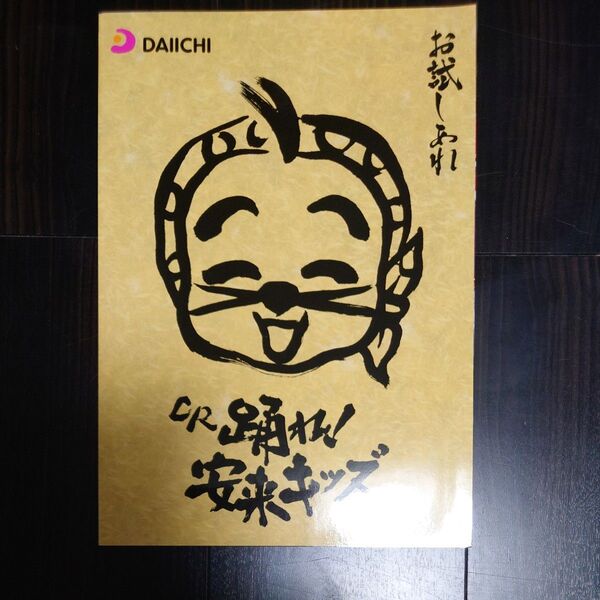 DAIICHI
お試しあれ
CR踊れ!
安来キッズ